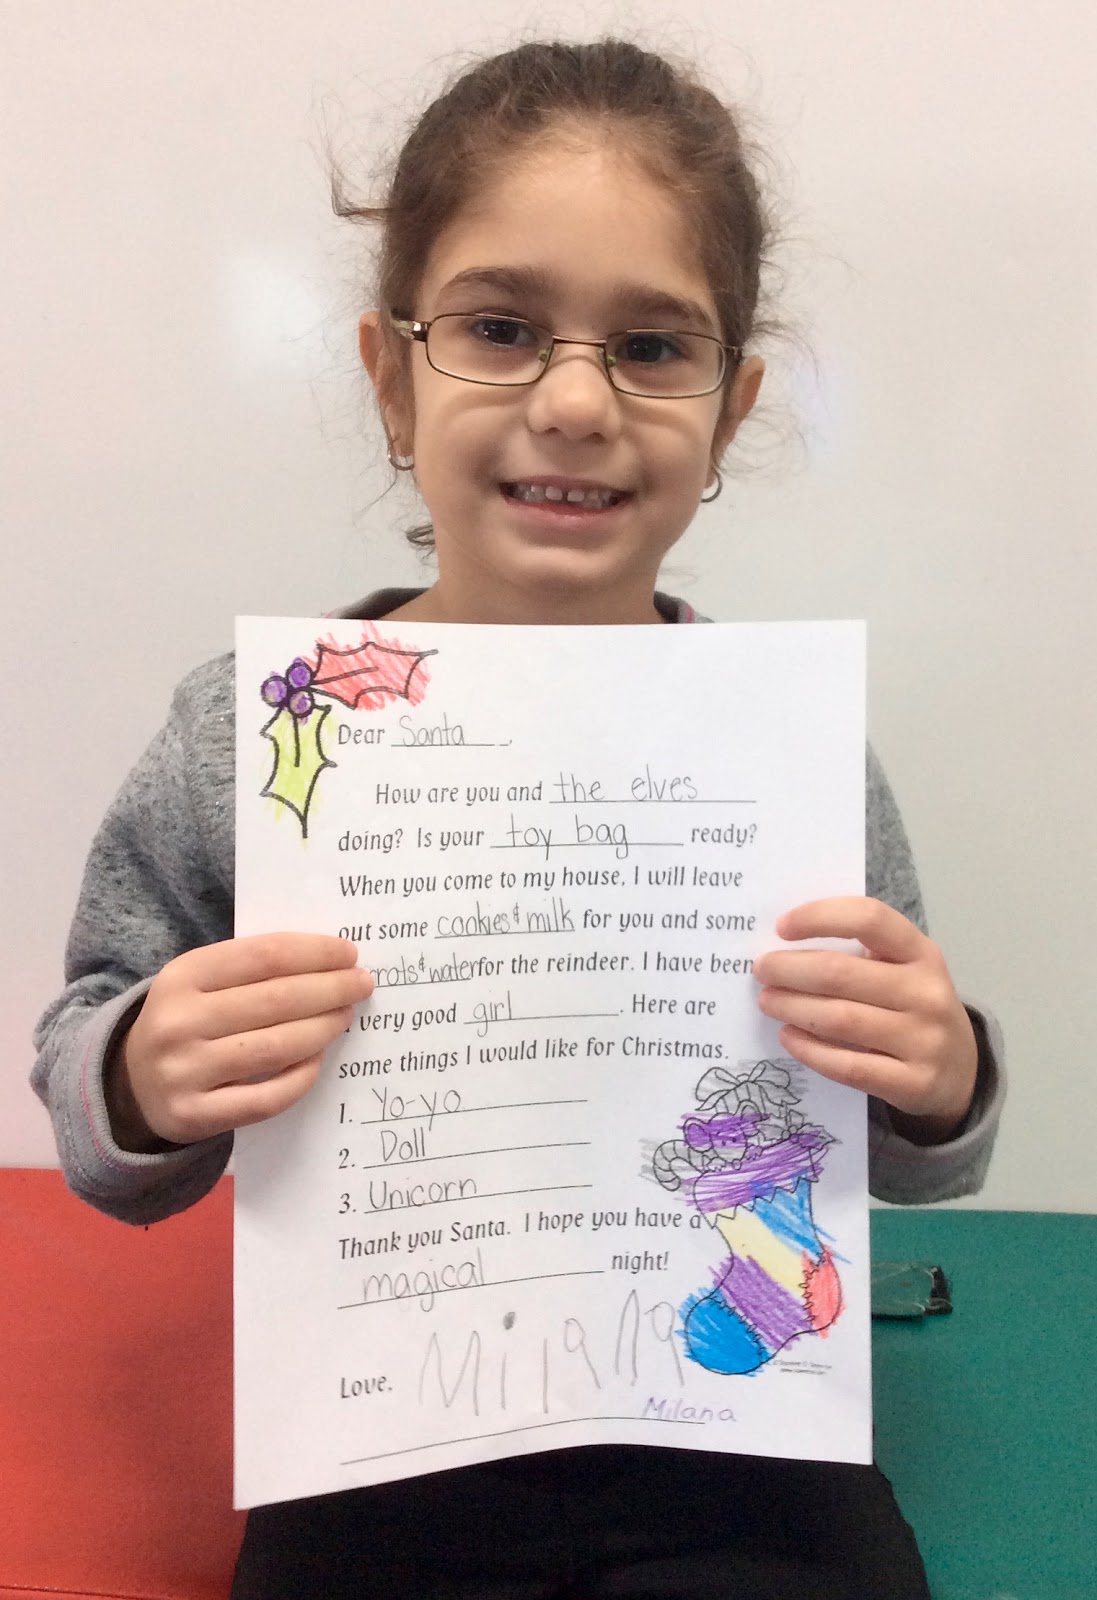 Dear Santa,
How are you and the elves
doing? Is your toy bag ready?
When you come to my house, I will leave
out some cookies & milk for you and some
rrots & water for the reindeer. I have been
very good girl. Here are
some things I would like for Christmas.
1. Yo-yo
2. Doll
3. Unicorn
Thank you Santa. I hope you have a
magical night!
Love,
Milana
Milana